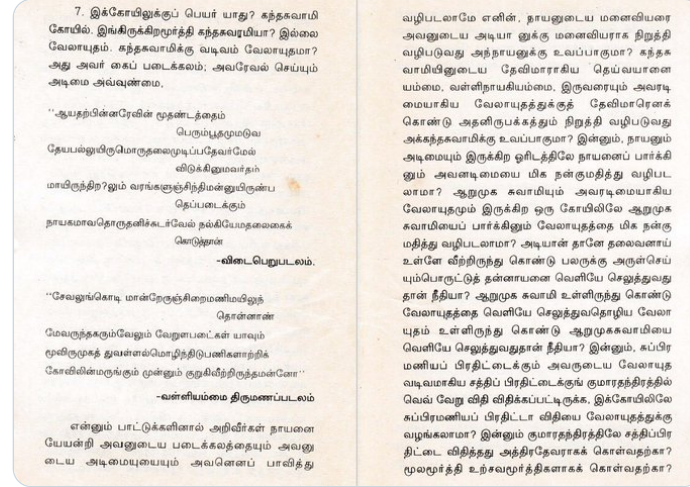 7. இக்கோயிலுக்குப் பெயர் யாது? கந்தசுவாமி
கோயில். இங்கிருக்கிறமூர்த்தி கந்தசுவரமியா? இல்லை
வேலாயுதம். கந்தசுவாமிக்கு வடிவம் வேலாயுதமா?
அது அவர் கைப் படைக்கலம்; அவரேவல் செய்யும்
அடிமை அவ்வுண்மை,
"ஆயதற்பின்னரேவின் மூதண்டத்தைம்
பெரும்பூதமுமடுவ
தேயபல்லுயிருமொருதலைமுடிப்பதேவர்மேல்
விடுக்கினுமவர்தம்
மாயிருந்திற?லும் வரங்களுஞ்சிந்திமன்னுயிருண்ப
தெப்படைக்கும்
நாயகமாவதொருதனிச்சுடர்வேல் நல்கியேமதலைகைக்
கொடுத்தான்
-விடைபெறுபடலம்.
"சேவலுங்கொடி மான்றேருஞ்சிறைமணிமயிலுந்
தொன்னாண்
மேவருந்தகரும்வேலும் வேறுளபடைட்கள் யாவும்
மூவிருமுகத் துவள்ளல்மொழிந்திடுபணிகளாற்றிக்
கோவிலின்மருங்கும் முன்னும் குறுகிவீற்றிருந்தமன்னோ"
-வள்ளியம்மை திருமணப்படலம்
என்னும் பாட்டுக்களினால் அறிவீர்கள் நாயனை
யேயன்றி அவனுடைய படைக்கலத்தையும் அவனு
டைய அடிமையுயையும் அவனெனப் பாவித்து
வழிபடலாமே எனின், நாயனுடைய மனைவியரை
அவனுடைய அடியா னுக்கு மனைவியராக நிறுத்தி
வழிபடுவது அந்நாயனுக்கு உவப்பாகுமா? கந்தசு
வாமியினுடைய தேவிமாராகிய தெய்வயானை
யம்மை, வள்ளிநாயகியம்மை, இருவரையும் அவரடி
மையாகிய வேலாயுதத்துக்குத் தேவிமாரெனக்
கொண்டு அதனிருபக்கத்தும் நிறுத்தி வழிபடுவது
அக்கந்தசுவாமிக்கு உவப்பாகுமா? இன்னும், நாயனும்
அடிமையும் இருக்கிற ஓரிடத்திலே நாயனைப் பார்க்கி
னும் அவனடிமையை மிக நன்குமதித்து வழிபட
லாமா? ஆறுமுக சுவாமியும் அவரடிமையாகிய
வேலாயுதமும் இருக்கிற ஒரு கோயிலிலே ஆறுமுக
சுவாமியைப் பார்க்கினும் வேலாயுதத்தை மிக நன்கு
மதித்து வழிபடலாமா? அடியான் தானே தலைவனாய்
உள்ளே வீற்றிருந்து கொண்டு பலருக்கு அருள்செய்
யும்பொருட்டுத் தன்னாயனை வெளியே செலுத்துவது
தான் நீதியா? ஆறுமுக சுவாமி உள்ளிருந்து கொண்டு
வேலாயுதத்தை வெளியே செலுத்துவதொழிய வேலா
யுதம் உள்ளிருந்து கொண்டு ஆறுமுகசுவாமியை
வெளியே செலுத்துவதுதான் நீதியா? இன்னும், சுப்பிர
மணியப் பிரதிட்டைக்கும் அவருடைய வேலாயுத
வடிவமாகிய சத்திப் பிரதிட்டைக்குங் குமாரதந்திரத்தில்
வெவ் வேறு விதி விதிக்கப்பட்டிருக்க, இக்கோயிலிலே
சுப்பிரமணியப் பிரதிட்டா விதியை வேலாயுதத்துக்கு
வழங்கலாமா? இன்னும் குமாரதந்திரத்திலே சத்திப்பிர
திட்டை விதித்தது அத்திரதேவராகக் கொள்வதற்கா?
மூலமூர்த்தி உற்சவமூர்த்திகளாகக் கொள்வதற்கா?